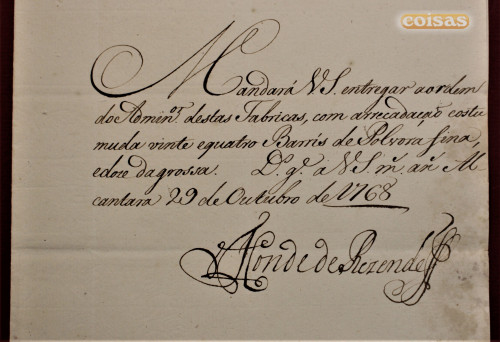 coisas
Mandará V S. entregar a ordem
do Admin.or destas Fabricas, com arrecadação costu
muda vinte equatro Barris de Polvora fina,
edoce dagrossa. D.s g.e a V S. m.s an.s Al
cantara 29 de Outubro de 1768
Conde de Rezende